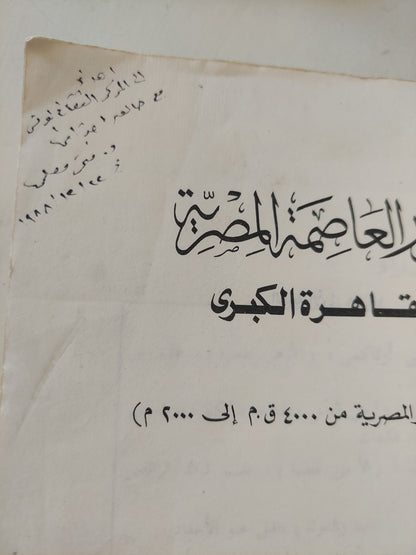 إهداء
إلى المركز الثقافي الفرنسي
مع خالص احترامى
د. فتحى مصيلحى
١٩٨٨/١٢/٢٢
العاصمة المصرية
قاهرة الكبرى
المصرية من ٤٠٠٠ ق.م إلى ٢٠٠٠ م)